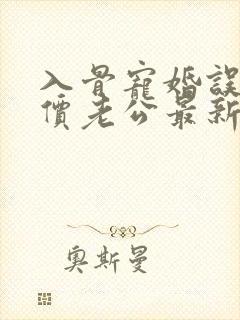 入骨寵婚誤
價老公最新
奧斯曼